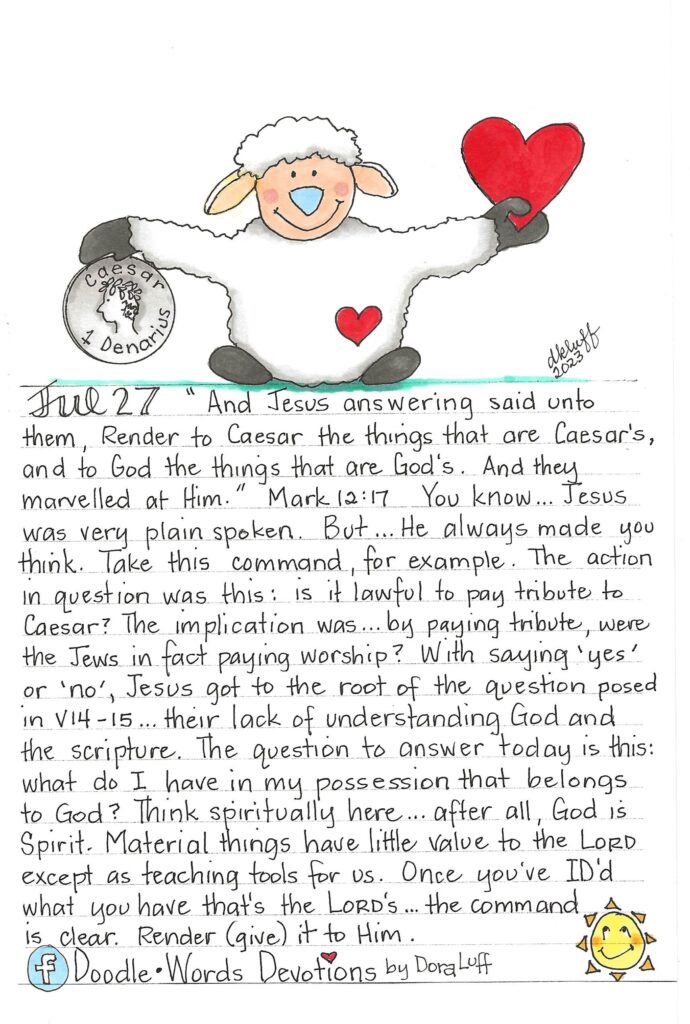 Caesar
1 Denarius
dkluff
2023
Jul 27 "And Jesus answering said unto
them, Render to Caesar the things that are Caesar's,
and to God the things that are God's. And they
marvelled at Him." Mark 12:17 You know... Jesus
was very plain spoken. But... He always made you
think. Take this command, for example. The action
in question was this: is it lawful to pay tribute to
Caesar? The implication was... by paying tribute, were
the Jews in fact paying worship? With saying 'yes'
or 'no', Jesus got to the root of the question posed
in V14-15... their lack of understanding God and
the scripture. The question to answer today is this:
what do I have in my possession that belongs
to God? Think spiritually here... after all, God is
Spirit. Material things have little value to the LORD
except as teaching tools for us. Once you've ID'd
what you have that's the LORD's... the command
is clear. Render (give) it to Him.
f Doodle•Words Devotions by Dora Luff